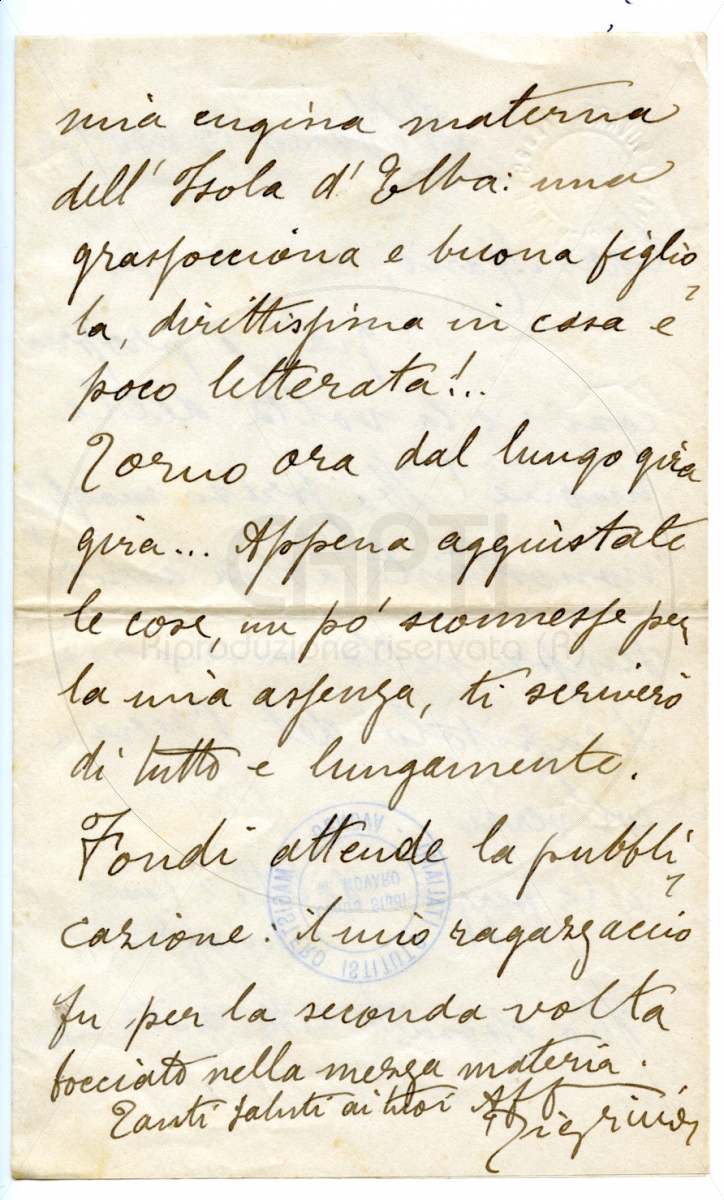 mia cugina materna
dell' Isola d' Elba: una
grassocciona e buona figlio-
la, dirittissima in casa e
poco letterata!..
Torno ora dal lungo gira
gira... Appena aggiustate
le cose, un po' sconnesse per
la mia assenza, ti scriverò
di tutto e lungamente.
Fondi attende la pubbli-
cazione: il mio ragazzaccio
fu per la seconda volta
bocciato nella mezza materia.
Tanti saluti ai tuoi Aff
CAPTI
Riproduzione riservata (R)
M. NOVARO